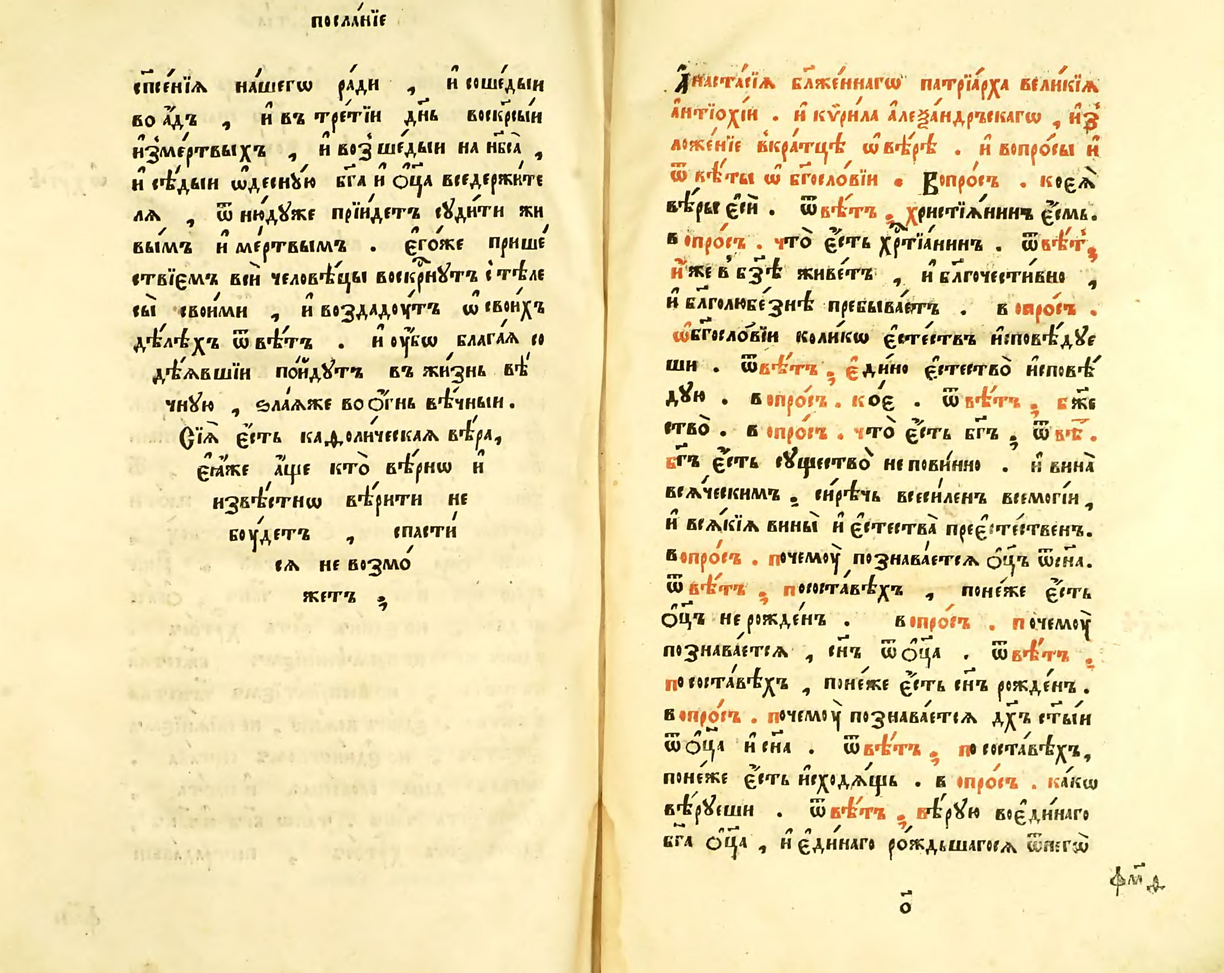 посла́нїе
сп҃се́нїѧ на́шегѡ ра́ди , и҆ соше́дыи
во а҆́дъ , и҆ въ тре́тїи дн҃ь воскр҃сыи
и҆зме́ртвыхъ , и҆ возше́дыи на нб҃са̀ ,
и҆ сѣ́дыи ѡ҆десну́ю бг҃а и҆ ѻ҆ц҃а вседержи́те
лѧ , ѿ ню́дуже прїи́детъ суди́ти жи
вы́мъ и҆ ме́ртвымъ . є҆го́же прише́
ствїємъ всѝ человѣ́цы воскр҃нутъ с̾ тѣле
сы̀ свои́ми , и҆ воздаду́тъ ѡ҆ свои́хъ
дѣ́лѣхъ ѿвѣ́тъ . и҆ ᲂу҆́бѡ блага́ѧ со
дѣ́ѧвшїи по́йдутъ въ жи́знь вѣ́
чную , ѕла́ѧже во ѻ҆́гнь вѣ́чныи .
Сїѧ̀ є҆́сть каѳоли́ческаѧ вѣ́ра,
є҆ѧ́же а҆́ще кто̀ вѣ́рнѡ и҆
извѣ́стнѡ вѣ́рити не
бꙋ́детъ , спасти́
сѧ не возмо́
жетъ ;
А҆наста́сїѧ бл҃же́ннагѡ патрїа́рха вели́кїѧ
а҆нтїохі́и . и҆ кѷри́ла а҆леѯа́ндръскагѡ , и҆з̾
ложе́нїе вкра́тцѣ ѡ҆ вѣ́рѣ . и҆ вопро́сы и҆
ѿвѣ́ты ѡ҆ бг҃осло́вїи . Вопро́съ . коеѧ̀
вѣ́ры є҆сѝ . ѿвѣ́тъ ; христїѧ́нинъ є҆́смь.
вопро́съ . что̀ є҆́сть хр҃тїа́нинъ . ѿвѣ́т ;
и҆́же в̾ бз҃ѣ живе́тъ , и҆ бл҃гоче́стивно ,
и҆ бл҃голюбе́знѣ пребыва́етъ . вопро́съ .
ѡ҆бг҃осло́вїи коли́кѡ є҆сте́ствъ и҆сповѣ́дуе
ши . ѿвѣ́тъ ; є҆ди́но є҆стество̀ и҆сповѣ́
дую . вопро́съ . ко́є . ѿвѣ́тъ ; бж҃е
ство̀ . вопро́съ . что̀ є҆́сть бг҃ъ ; ѿвѣ́ .
бг҃ъ є҆́сть существо̀ непови́нно . и҆ вина̀
всѧ́ческимъ ; си́рѣчь всеси́ленъ всемогі́и ,
и҆ всѧ́кїѧ вины̀ и҆ є҆стества̀ преє҆сте́ственъ.
вопро́съ . почемꙋ̀ познава́етсѧ ѻ҆ц҃ъ ѿсн҃а.
ѿвѣ́тъ ; пососта́вѣхъ , поне́же є҆́сть
ѻ҆ц҃ъ не рожде́нъ . вопро́съ . почемꙋ̀
познава́етсѧ , сн҃ъ ѿ ѻ҆ц҃а . ѿвѣ́тъ ;
пососта́вѣхъ , поне́же є҆́сть сн҃ъ рожде́нъ .
вопро́съ . почемꙋ̀ познава́етсѧ дх҃ъ ст҃ы́и
ѿ ѻ҆ц҃а и҆ сн҃а . ѿвѣ́тъ ; пососта́вѣхъ,
поне́же є҆́сть и҆сходѧ́щь . вопро́съ . ка́кѡ
вѣ́руєши . ѿвѣ́тъ ; вѣ́рую воє҆ди́наго
бг҃а ѻ҆ц҃а , и҆ є҆ди́наго ро́ждьшагосѧ ѿнегѡ̀
о҃